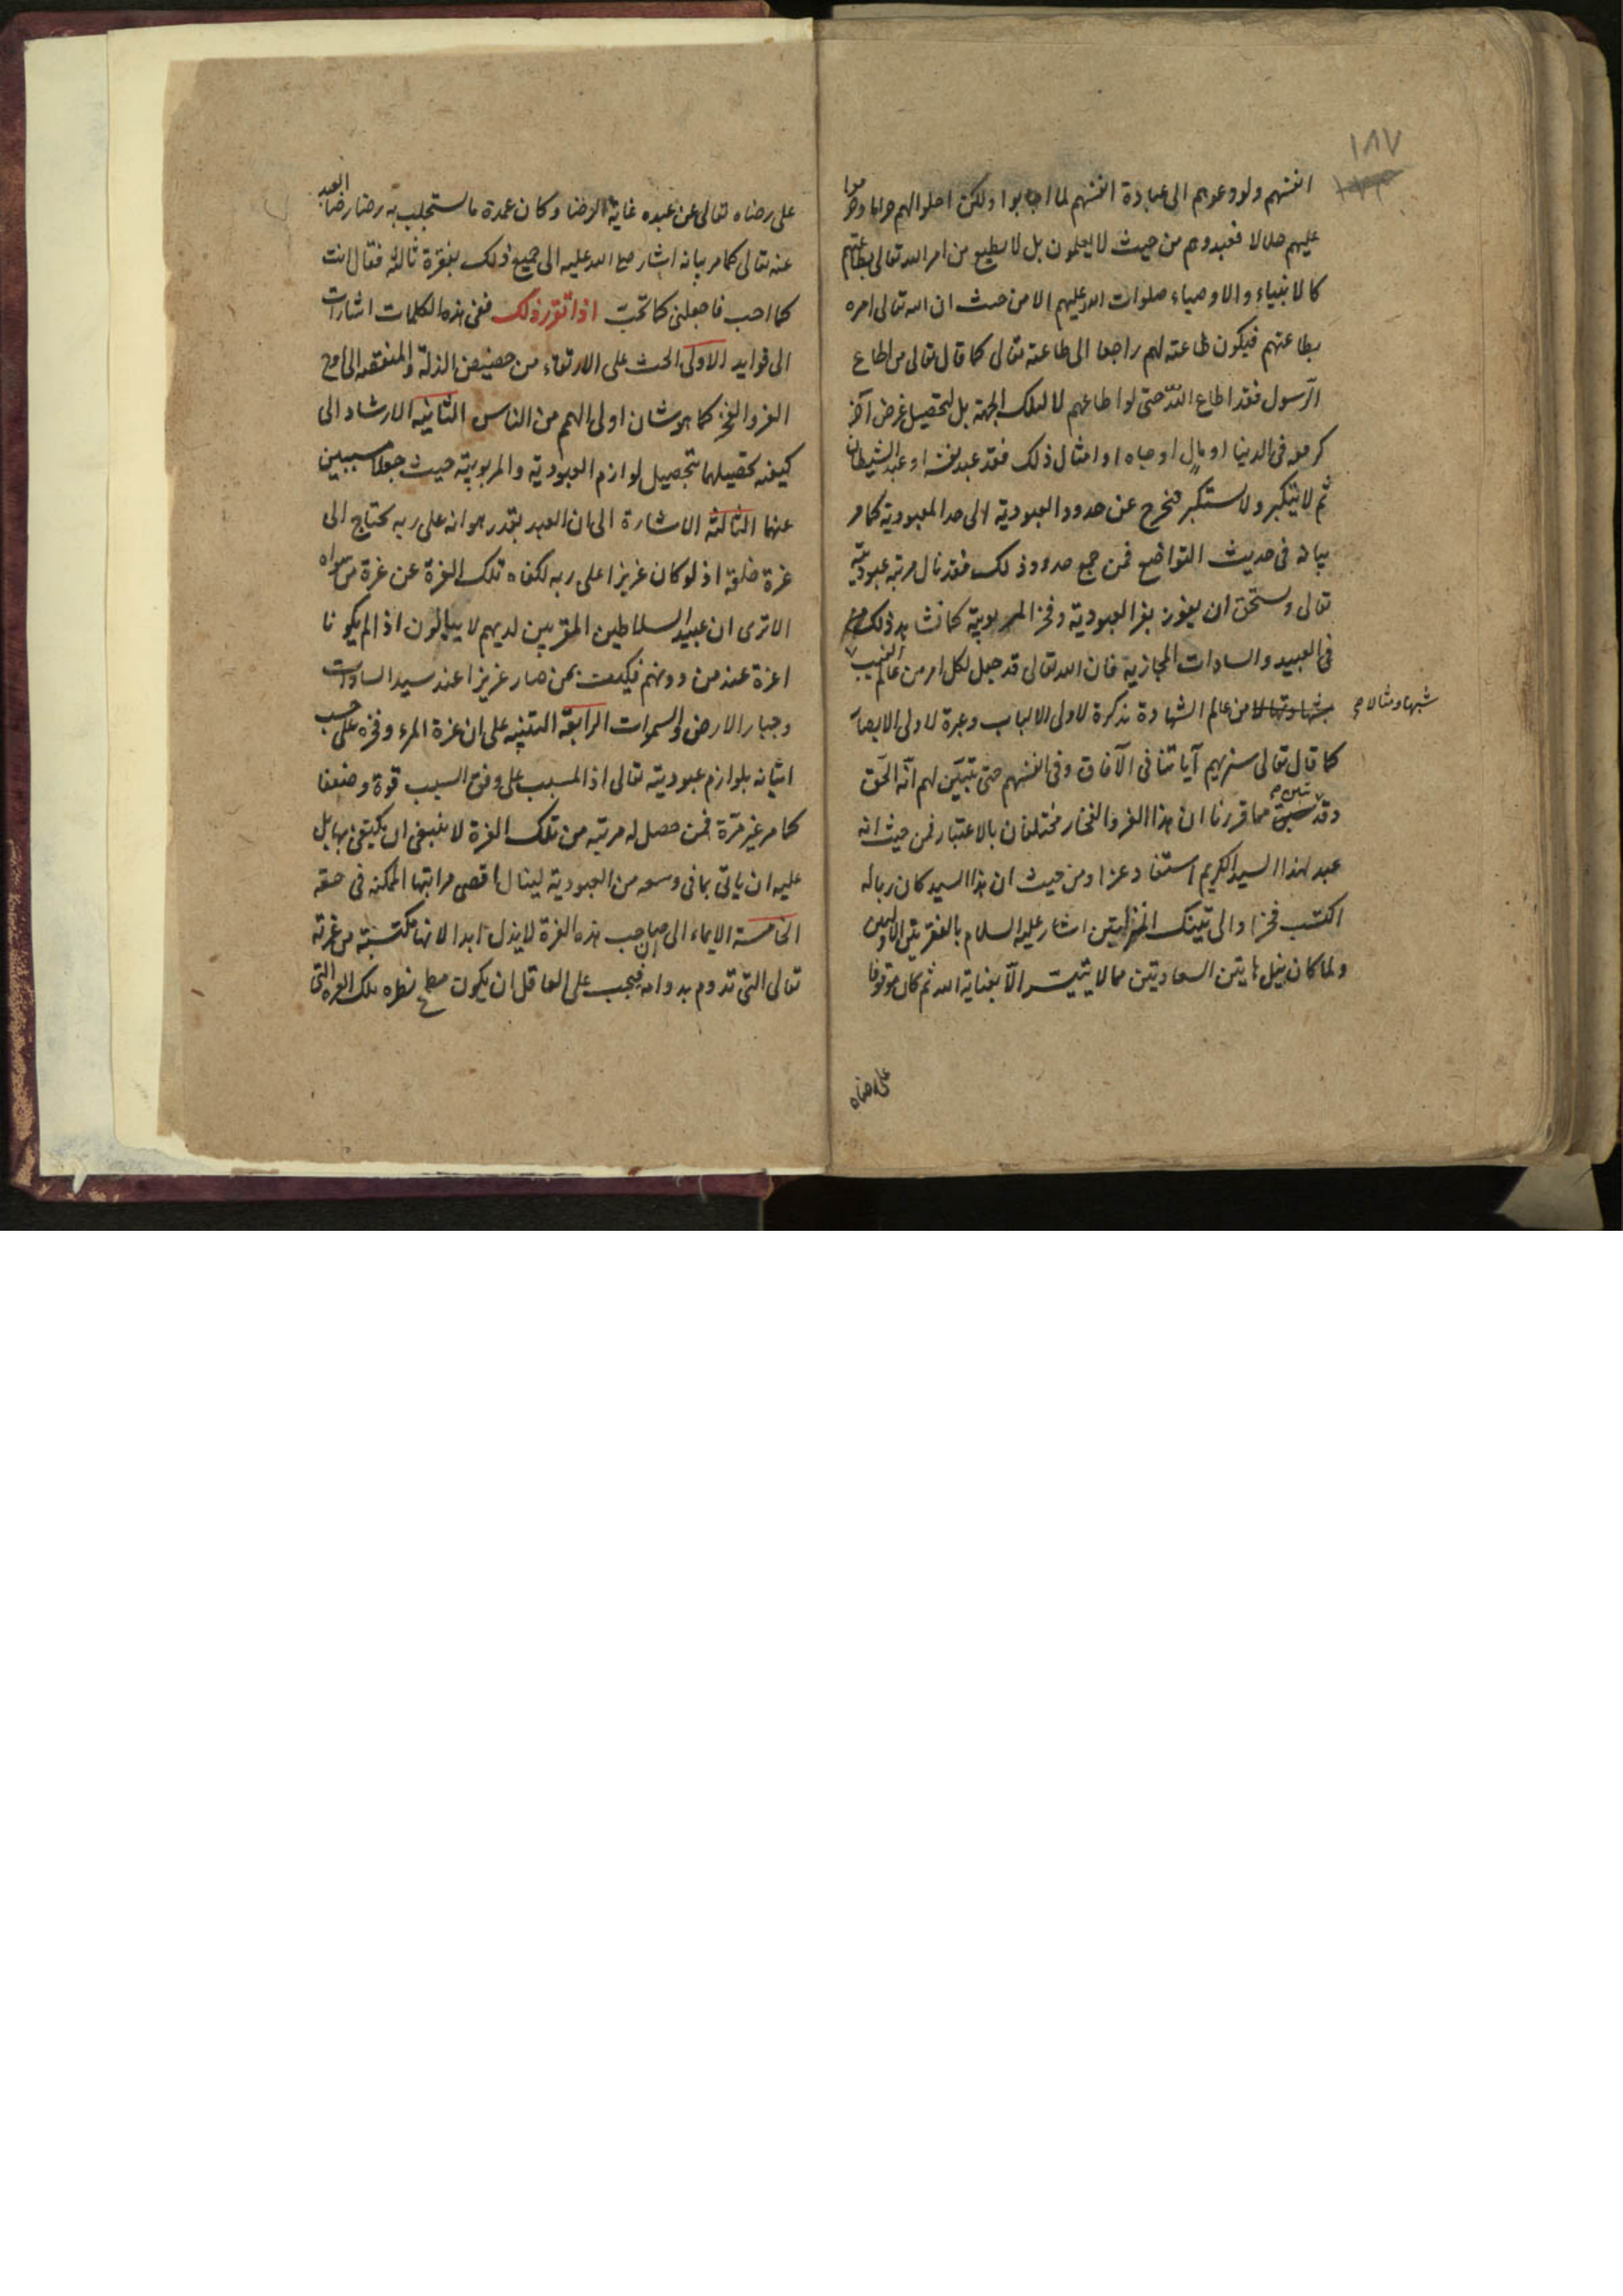 ١٨٧
انفسهم ولو دعوهم الى عبادة انفسهم لما اجابوا ولكن احلوا لهم حراما وحرموا
عليهم حلالا فعبدوهم من حيث لا يعلمون بل لا يطيع من امر الله تعالى بطاعتهم
كالانبياء والاوصياء صلوات الله عليهم الا من حيث ان الله تعالى امره
بطاعتهم فيكون طاعته لهم راجعا الى طاعته تعالى كما قال تعالى من اطاع
الرسول فقد اطاع الله حتى لو اطاعهم لا لتلك الجهة بل لتحصيل غرض آخر
فى الدنيا او مال او جاه او امثال ذلك فقد عبد نفسه او عبد الشيطان
ثم لا يتكبر ولا يستكبر فيخرج عن حدود العبودية الى حد المعبودية كما مر
بيانه فى حديث التواضع فمن جمع حدود ذلك فقد نال مرتبة عبوديته
تعالى ويستحق ان يفوز بعز العبودية وفخر المربوبية كما نشاهد ذلك
فى العبيد والسادات المجازية فان الله تعالى قد جعل لكل امر من عالم الغيب
شبها ومثالا صح
من عالم الشهادة تذكرة لاولى الالباب وعبرة لاولى الابصار
كما قال تعالى سنريهم آياتنا فى الآفاق وفى انفسهم حتى يتبين لهم انه الحق
وقد تبين مما قررنا ان هذا العز والفخار مختلفان بالاعتبار فمن حيث انه
عبد لهذا السيد الكريم استفاد عزا ومن حيث ان هذا السيد كان ربا له
اكتسب فخرا والى تينك المنزلتين اشار عليه السلام بالفقرتين الاوليين
ولما كان نيل هاتين السعادتين مما لا يتيسر الا بعناية الله ثم كان موقوفا
على رضاه
على رضاه تعالى عن عبده غاية الرضا وكان عمدة ما يستجلب به رضاه رضا العبد
عنه تعالى كما مر بيانه اشار صلى الله عليه الى جميع ذلك بفقرة ثالثة فقال انت
كما احب فاجعلنى كما تحب اذا تقرر ذلك ففى هذه الكلمات اشارات
الى فوايد الاولى الحث على الارتقاء من حضيض الذلة والمنقصة الى اوج
العز والفخر كما هو شان اولى الهمم من الناس الثانية الارشاد الى
كيفية تحصيلهما بتحصيل لوازم العبودية والمربوبية حيث جعلا مسببين
عنهما الثالثة الاشارة الى ان العبد بقدر هوانه على ربه يحتاج الى
عزة خلقه اذ لو كان عزيزا على ربه لكفاه تلك العزة عن عزة من سواه
الا ترى ان عبيد السلاطين المقربين لديهم لا يبالون اذا لم يكونا
اعزة عند من دونهم فكيف بمن صار عزيزا عند سيد السادات
وجبار الارض والسموات الرابعة التنبيه على ان عزة المرء وفخره على حسب
اتيانه بلوازم عبوديته تعالى اذ المسبب على وفق السبب قوة وضعفا
كما مر غير مرة فمن حصل له مرتبة من تلك العزة لا ينبغى ان يكتفى بها بل
عليه ان ياتى بما فى وسعه من العبودية لينال اقصى مراتبها الممكنة فى حقه
الخامسة الايماء الى ان صاحب هذه العزة لا يذل ابدا لانها مكتسبة من عزته
تعالى التى تدوم بدوامه فيجب على العاقل ان يكون مطمح نظره تلك العزة التى